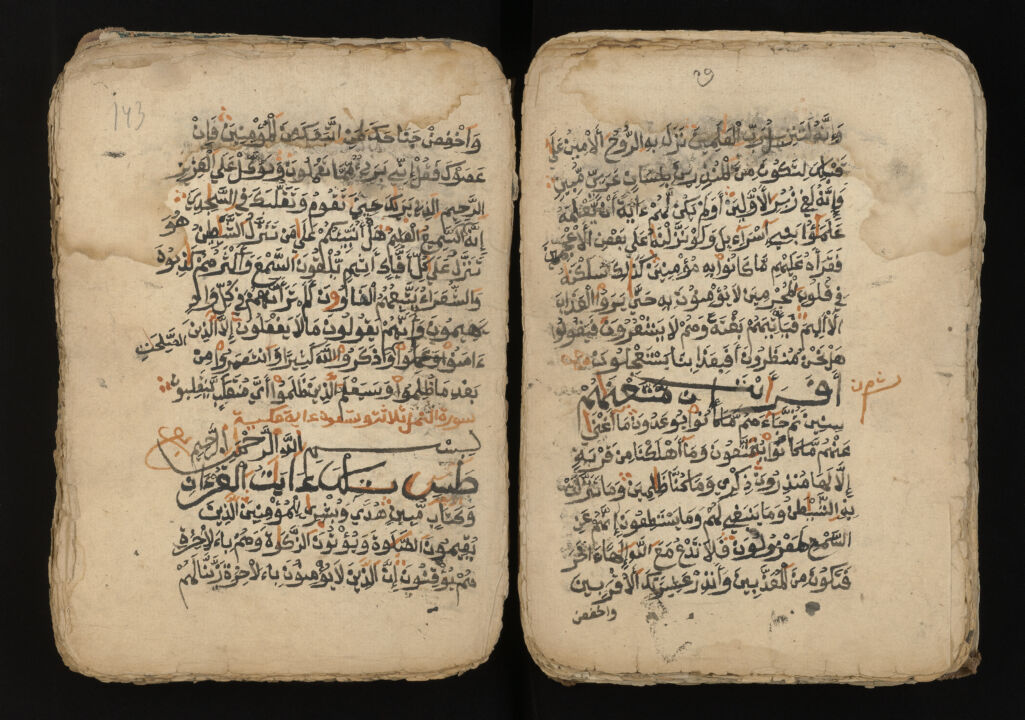 وَإِنَّهُ لَتَنزِيلُ رَبِّ الْعَلَمِينَ نَزَلَ بِهِ الرُّوحُ الْأَمِينُ عَلَى
قَلْبِكَ لِتَكُونَ مِنَ الْمُنذِرِينَ بِلِسَانٍ عَرَبِيٍّ مُّبِينٍ
وَإِنَّهُ لَفِي زُبُرِ الْأَوَّلِينَ أَوَلَمْ يَكُن لَّهُمْ ءَايَةً أَن يَعْلَمَهُ
عُلَمَٰؤُا بَنِي إِسْرَاءِيلَ وَلَوْ نَزَّلْنَٰهُ عَلَى بَعْضِ الْأَعْجَمِينَ
فَقَرَأَهُ عَلَيْهِم مَّا كَانُوا بِهِ مُؤْمِنِينَ كَذَٰلِكَ سَلَكْنَٰهُ
فِي قُلُوبِ الْمُجْرِمِينَ لَا يُؤْمِنُونَ بِهِ حَتَّى يَرَوُا الْعَذَابَ
الْأَلِيمَ فَيَأْتِيَهُم بَغْتَةً وَهُمْ لَا يَشْعُرُونَ فَيَقُولُوا
هَلْ نَحْنُ مُنظَرُونَ أَفَبِعَذَابِنَا يَسْتَعْجِلُونَ
أَفَرَءَيْتَ إِن مَّتَّعْنَٰهُمْ
سِنِينَ ثُمَّ جَاءَهُم مَّا كَانُوا يُوعَدُونَ مَا أَغْنَى
عَنْهُم مَّا كَانُوا يُمَتَّعُونَ وَمَا أَهْلَكْنَا مِن قَرْيَةٍ
إِلَّا لَهَا مُنذِرُونَ ذِكْرَى وَمَا كُنَّا ظَٰلِمِينَ وَمَا تَنَزَّلَتْ
بِهِ الشَّيَٰطِينُ وَمَا يَنبَغِي لَهُمْ وَمَا يَسْتَطِيعُونَ إِنَّهُمْ عَنِ
السَّمْعِ لَمَعْزُولُونَ فَلَا تَدْعُ مَعَ اللَّهِ إِلَٰهًا ءَاخَرَ
فَتَكُونَ مِنَ الْمُعَذَّبِينَ وَأَنذِرْ عَشِيرَتَكَ الْأَقْرَبِينَ
واخفض
143
وَاخْفِضْ جَنَاحَكَ لِمَنِ اتَّبَعَكَ مِنَ الْمُؤْمِنِينَ فَإِنْ
عَصَوْكَ فَقُلْ إِنِّي بَرِيءٌ مِّمَّا تَعْمَلُونَ وَتَوَكَّلْ عَلَى الْعَزِيزِ
الرَّحِيمِ الَّذِي يَرَىٰكَ حِينَ تَقُومُ وَتَقَلُّبَكَ فِي السَّٰجِدِينَ
إِنَّهُ هُوَ السَّمِيعُ الْعَلِيمُ هَلْ أُنَبِّئُكُمْ عَلَى مَن تَنَزَّلُ الشَّيَٰطِينُ
تَنَزَّلُ عَلَى كُلِّ أَفَّاكٍ أَثِيمٍ يُلْقُونَ السَّمْعَ وَأَكْثَرُهُمْ كَٰذِبُونَ
وَالشُّعَرَاءُ يَتَّبِعُهُمُ الْغَاوُونَ أَلَمْ تَرَ أَنَّهُمْ فِي كُلِّ وَادٍ
يَهِيمُونَ وَأَنَّهُمْ يَقُولُونَ مَا لَا يَفْعَلُونَ إِلَّا الَّذِينَ
ءَامَنُوا وَعَمِلُوا الصَّٰلِحَٰتِ وَذَكَرُوا اللَّهَ كَثِيرًا وَانتَصَرُوا مِن
بَعْدِ مَا ظُلِمُوا وَسَيَعْلَمُ الَّذِينَ ظَلَمُوا أَيَّ مُنقَلَبٍ يَنقَلِبُونَ
سورة النمل ثلاث وتسعون ءاية مكية
بِسْمِ اللَّهِ الرَّحْمَٰنِ الرَّحِيمِ
طس تِلْكَ ءَايَٰتُ الْقُرْءَانِ
وَكِتَابٍ مُّبِينٍ هُدًى وَبُشْرَى لِلْمُؤْمِنِينَ الَّذِينَ
يُقِيمُونَ الصَّلَوٰةَ وَيُؤْتُونَ الزَّكَوٰةَ وَهُم بِالْأَخِرَةِ
هُمْ يُوقِنُونَ إِنَّ الَّذِينَ لَا يُؤْمِنُونَ بِالْأَخِرَةِ زَيَّنَّا لَهُمْ